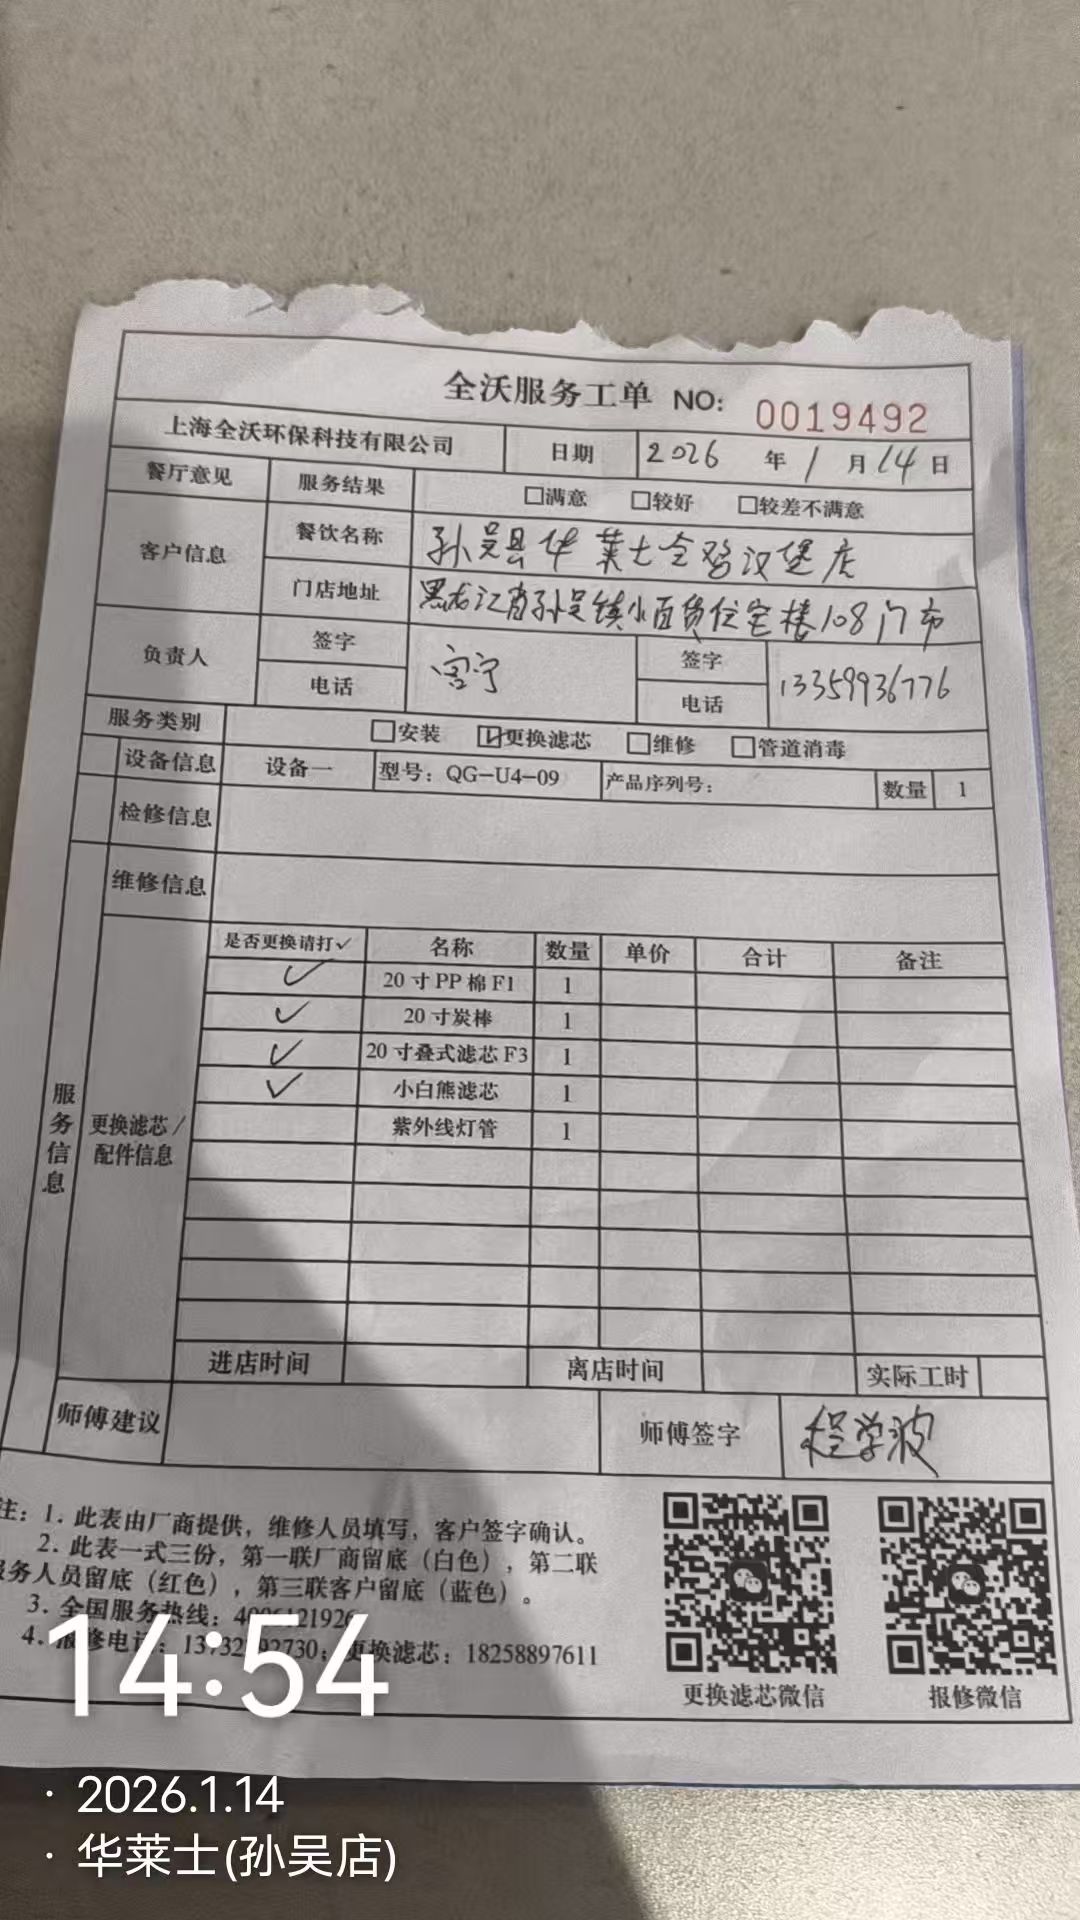 全沃服务工单 NO: 0019492
上海全沃环保科技有限公司 日期 2026 年 1 月 14 日
餐厅意见 服务结果 □满意 □较好 □较差不满意
客户信息 餐饮名称 孙吴县华莱士全鸡汉堡店
门店地址 黑龙江省孙吴镇小百货住宅楼108门市
负责人 签字 宫宁 签字 13359936776
电话 电话
服务类别 □安装 ☑更换滤芯 □维修 □管道消毒
设备信息 设备一 型号：QG-U4-09 产品序列号： 数量 1
检修信息
维修信息
服务信息
更换滤芯/配件信息
是否更换请打✓ 名称 数量 单价 合计 备注
✓ 20寸PP棉F1 1
✓ 20寸炭棒 1
✓ 20寸叠式滤芯F3 1
✓ 小白熊滤芯 1
紫外线灯管 1
进店时间 离店时间 实际工时
师傅建议 师傅签字 程学波
注：1. 此表由厂商提供，维修人员填写，客户签字确认。
2. 此表一式三份，第一联厂商留底（白色），第二联
服务人员留底（红色），第三联客户留底（蓝色）。
3. 全国服务热线：
4. 报修电话： 更换滤芯：18258897611
更换滤芯微信 报修微信
14:54
· 2026.1.14
· 华莱士(孙吴店)